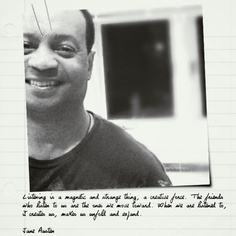 Listening is a magnetic and strange thing, a creative force. The friends
who listen to us are the ones we move toward. When we are listened to,
it creates us, makes us unfold and expand.
Jane Austen